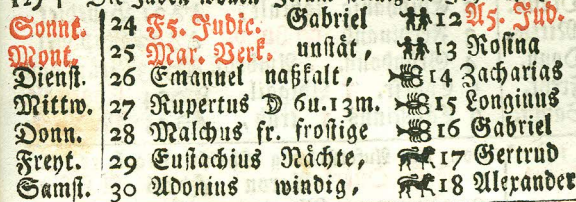 Sonnt. 24 F5. Judic. Gabriel 12 A5. Jud.
Mont. 25 Mar. Verk. unstät, 13 Rosina
Dienst. 26 Emanuel naßkalt, 14 Zacharias
Mittw. 27 Rupertus ☽ 6u.13m. 15 Longinus
Donn. 28 Malchus fr. frostige 16 Gabriel
Freyt. 29 Eustachius Nächte, 17 Gertrud
Samst. 30 Adonius windig, 18 Alexander